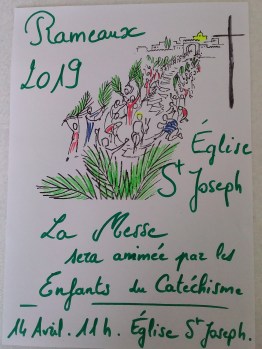 Rameaux
2019
Église
St Joseph
La Messe
sera animée par les
Enfants du Catéchisme
14 Avril. 11h. Église St Joseph.